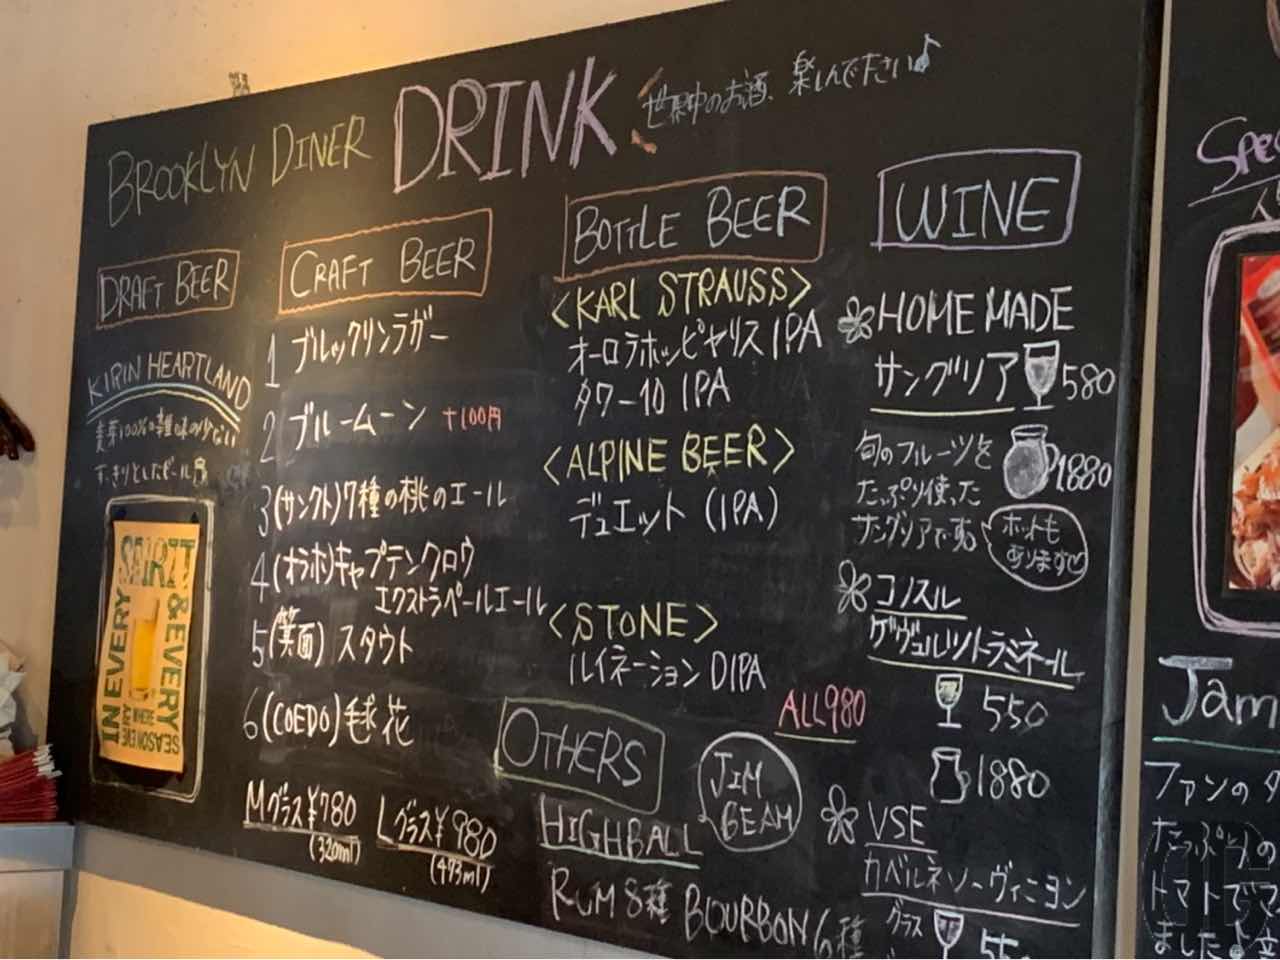 BROOKLYN DINER DRINK
世界中のお酒、楽しんでださい♪
DRAFT BEER
KIRIN HEARTLAND
麦芽100%の雑味の少ない
すっきりとしたビール
SPIRIT
IN EVERY
& EVERY
CRAFT BEER
1 ブルックリンラガー
2 ブルームーン +100円
3 (サンクト) 7種の桃のエール
4 (オラホ) キャプテンクロウ
エクストラペールエール
5 (箕面) スタウト
6 (COEDO) 毬花
Mグラス¥780
(320ml)
Lグラス¥980
(473ml)
BOTTLE BEER
<KARL STRAUSS>
オーロラホッピャリス IPA
タワー10 IPA
<ALPINE BEER>
デュエット (IPA)
<STONE>
ルイネーション DIPA
ALL980
OTHERS
JIM
BEAM
HIGHBALL
RUM 8種 BOURBON 6種
WINE
HOME MADE
サングリア 580
旬のフルーツを
たっぷり使った
サングリアです。
1880
ホットも
あります
コノスル
ゲヴュルツトラミネール
550
1880
VSE
カベルネソーヴィニヨン
グラス
Jam
ファンの
たっぷりの
トマトでマ
ました!